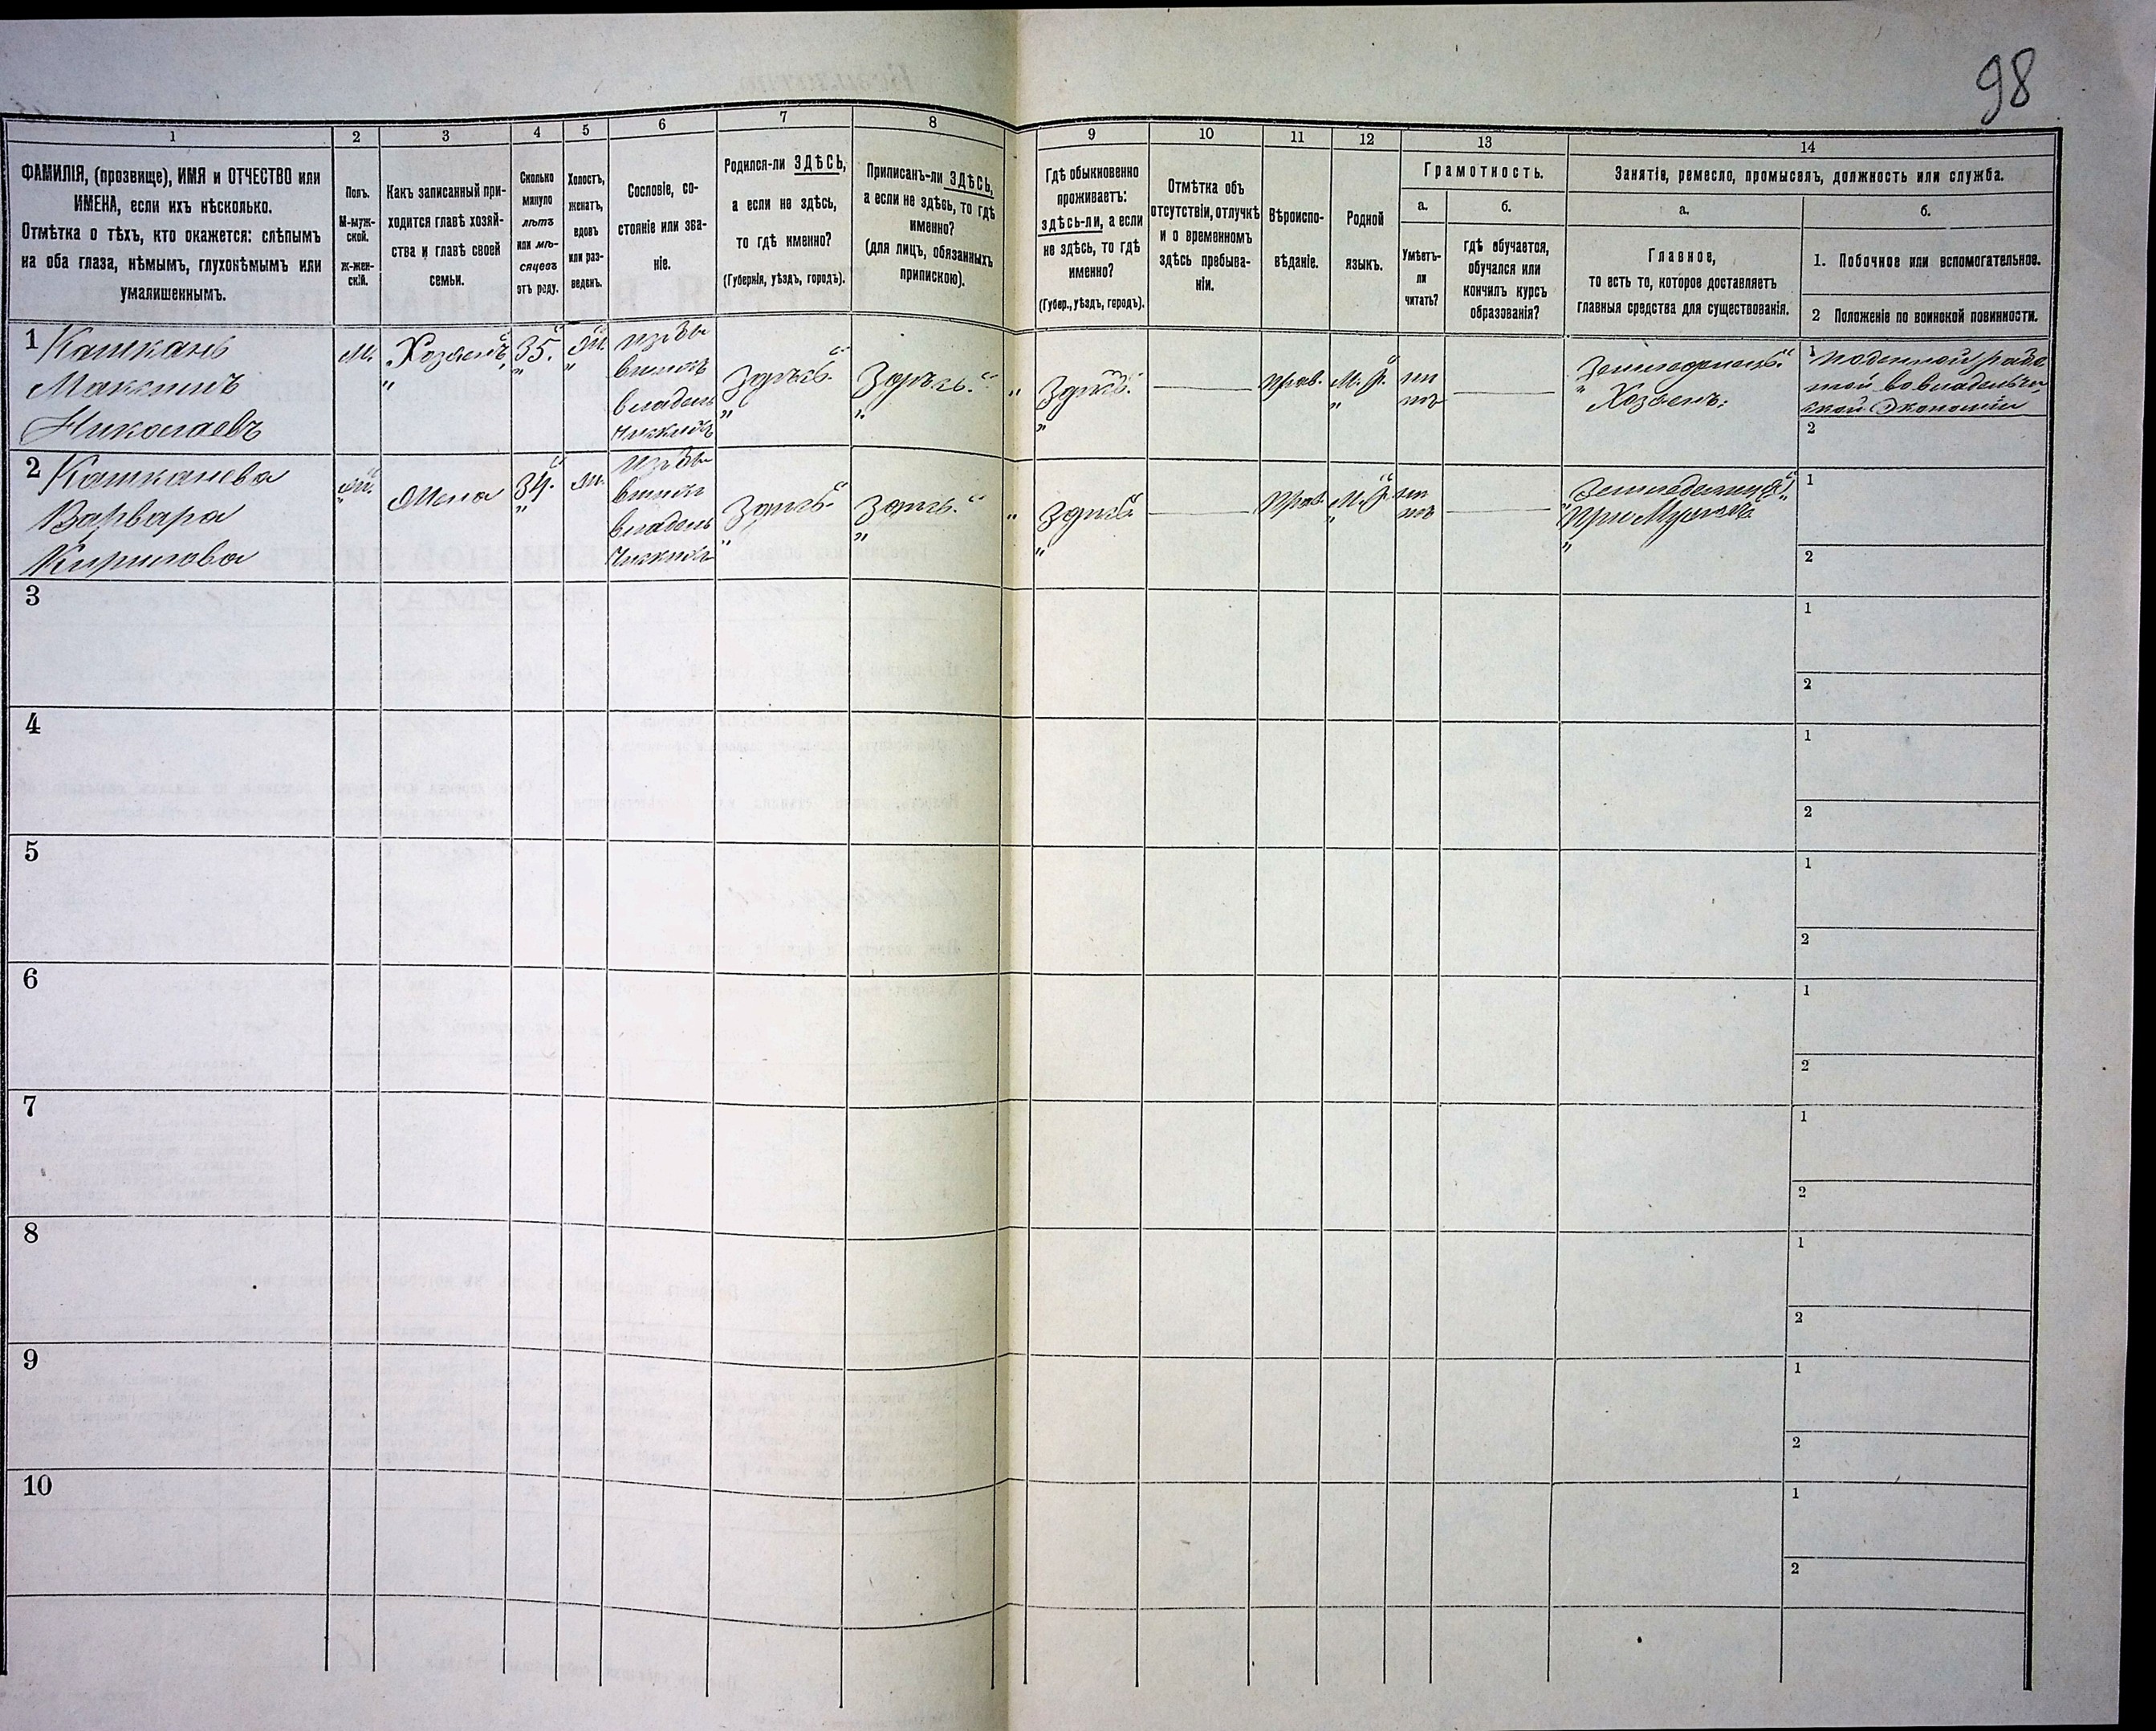 98
1
2
3
4
5
6
7
8
9
10
11
12
13
14
ФАМИЛІЯ, (прозвище), ИМЯ и ОТЧЕСТВО или
ИМЕНА, если ихъ нѣсколько.
Отмѣтка о тѣхъ, кто окажется: слѣпымъ
на оба глаза, нѣмымъ, глухонѣмымъ или
умалишеннымъ.
Полъ.
М-муж-
ской.
Ж-жен-
скій.
Какъ записанный при-
ходится главѣ хозяй-
ства и главѣ своей
семьи.
Сколько
минуло
лѣтъ
или мѣ-
сяцевъ
отъ роду.
Холостъ,
женатъ,
вдовъ
или раз-
веденъ.
Сословіе, со-
стояніе или зва-
ніе.
Родился-ли ЗДѢСЬ,
а если не здѣсь,
то гдѣ именно?
(Губернія, уѣздъ, городъ).
Приписанъ-ли ЗДѢСЬ,
а если не здѣсь, то гдѣ
именно?
(для лицъ, обязанныхъ
припискою).
Гдѣ обыкновенно
проживаетъ:
здѣсь-ли, а если
не здѣсь, то гдѣ
именно?
(Губер., уѣздъ, городъ).
Отмѣтка объ
отсутствіи, отлучкѣ
и о временномъ
здѣсь пребыва-
ніи.
Вѣроиспо-
вѣданіе.
Родной
языкъ.
Грамотность.
а.
Умѣетъ-
ли
читать?
б.
гдѣ обучается,
обучался или
кончилъ курсъ
образованія?
Занятіе, ремесло, промыселъ, должность или служба.
а.
Главное,
то есть то, которое доставляетъ
главныя средства для существованія.
б.
1. Побочное или вспомогательное.
2 Положеніе по воинской повинности.
1 Кашкань
Максимъ
Николаевъ
М.
Хозяенъ
35.
Ж.
Изъ бы
вшихъ
владель
ческихъ
Здѣсь.
Здѣсь.
Здѣсь.
Прав.
М. Р.
нѣ
тъ
Хозяенъ.
1
2
2 Кашканева
Варвара
Кирилова
Ж.
Жена
34.
Изъ бы
вшихъ
владель
ческихъ
Здѣсь.
Здѣсь.
Здѣсь.
Прав.
М. Р.
нѣ
тъ
При Мужѣ
1
2
3
1
2
4
1
2
5
1
2
6
1
2
7
1
2
8
1
2
9
1
2
10
1
2